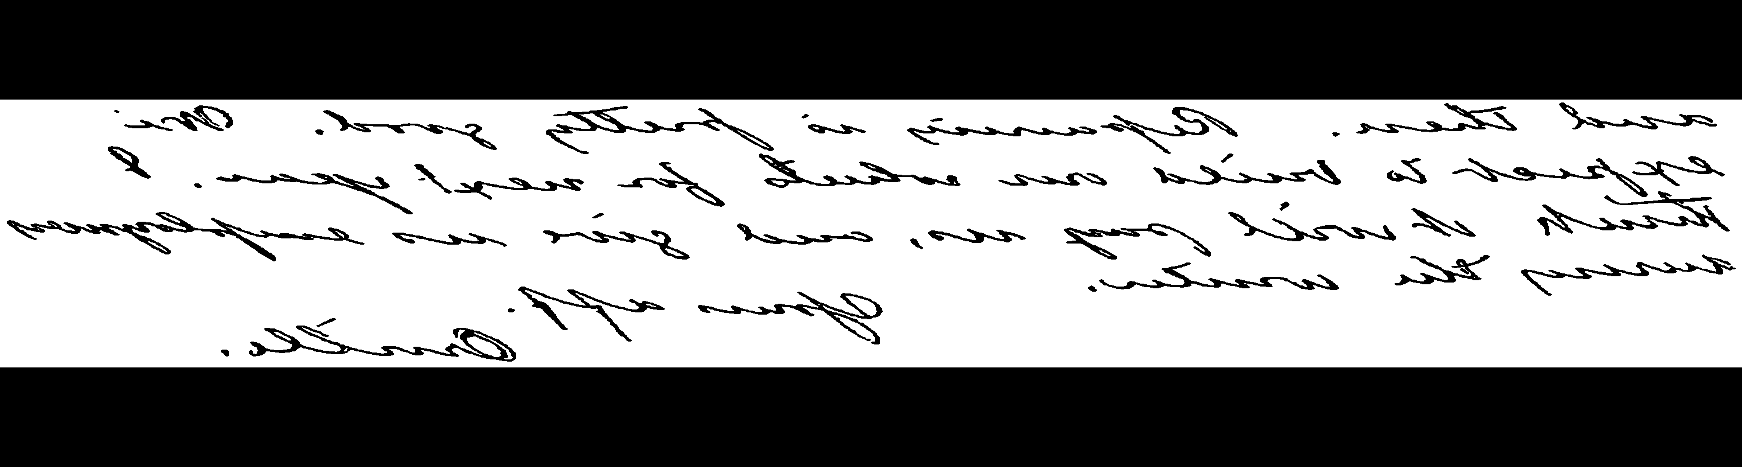 and then. Repairing is pretty good. We
expect to build on what for next year. I
think it will pay us, and give us employment
during the winter.
Your aff.
Orville.